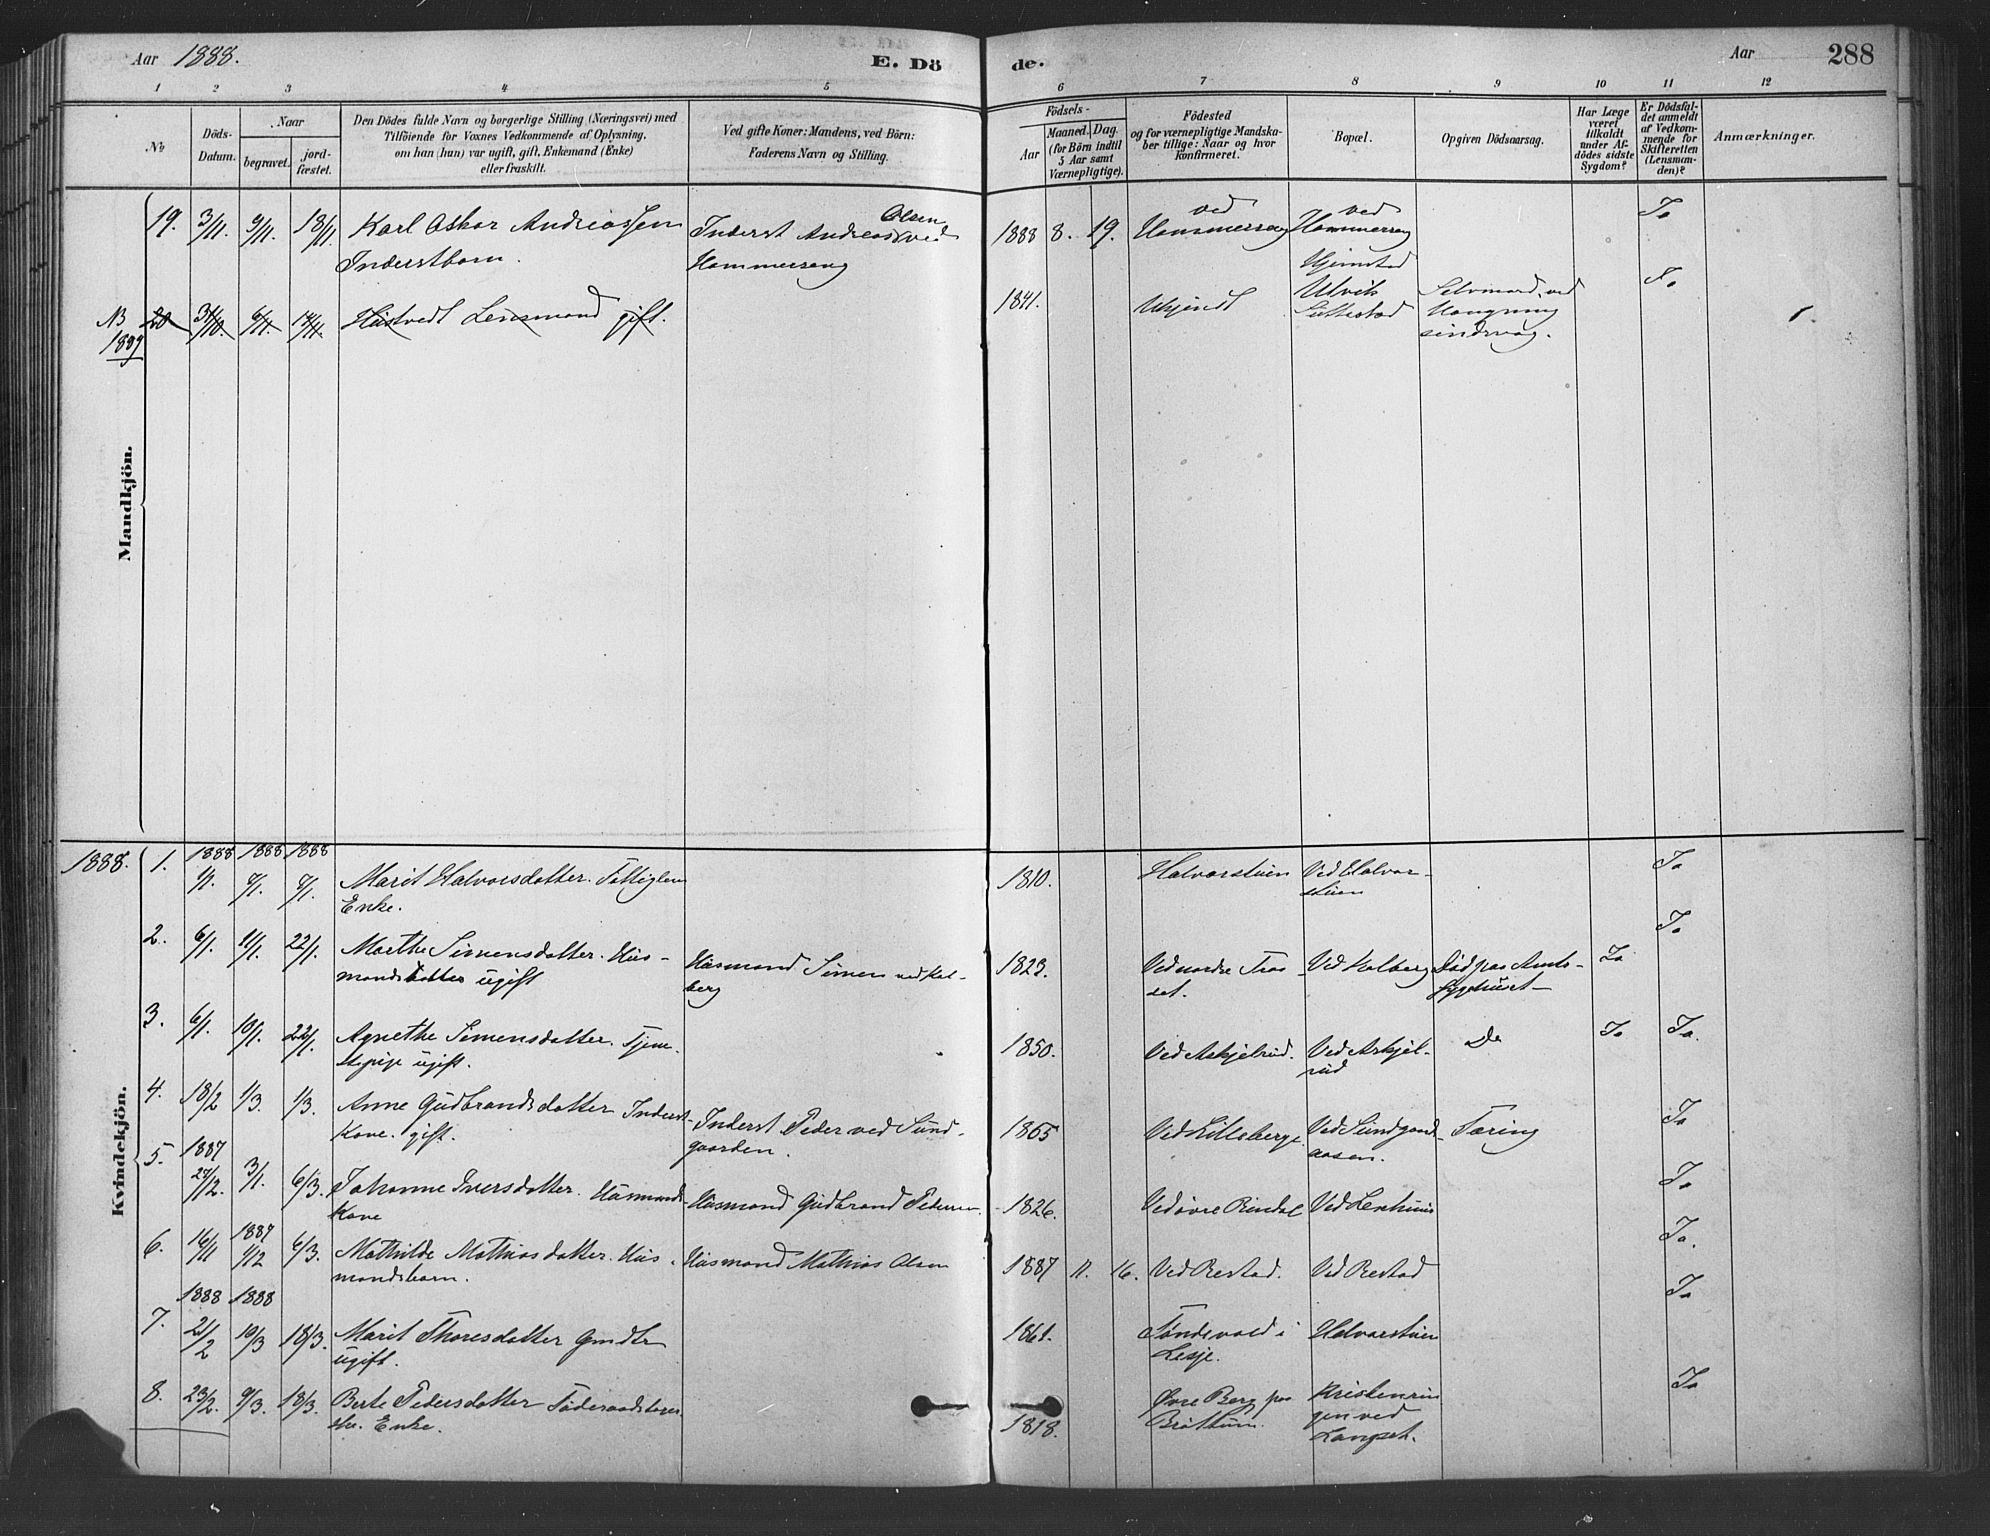 Aar 1888.
E. Dö de.
Aar
288
1 2 3 4 5 6 7 8 9 10 11 12
No
Döds-Datum.
Naar
begravet.
jord-fæstet.
Den Dödes fulde Navn og borgerlige Stilling (Næringsvei) med
Tilföiende for Voxnes Vedkommende af Oplysning,
om han (hun) var ugift, gift, Enkemand (Enke)
eller fraskilt.
Ved gifte Koner: Mandens, ved Börn:
Faderens Navn og Stilling.
Födsels-
Aar
Maaned. Dag.
(for Börn indtil
5 Aar samt
Værnepligtige).
Födested
og for værnepligtige Mandska-
ber tillige: Naar og hvor
konfirmeret.
Bopæl.
Opgiven Dödsaarsag.
Har Læge
været
tilkaldt
under Af-
dödes sidste
Sygdom?
Er Dödsfal-
det anmeldt
af Vedkom-
mende for
Skifteretten
(Lensman-
den)?
Anmærkninger.
Mandkjön.
19. 3/11. 9/11. 18/11. Karl Oskar Andreassen
Inderstbarn.
Inderst Andreas Olsen ved
Hammerseng
1888 8. 19. ved Hammerseng ved Hammerseng Ja
NB 1889
20 31/10. 6/11. 18/11 Hustvedt Lensmand gift.
1841. Ukjendt
Ulvik
Suttestad
Selvmord, ved
Hængning
sindsvag.
Ja
1888.
Kvindekjön.
1. 1888 1/1. 1888 8/1. 1888 8/1. Marit Halvorsdatter. Fattiglem
Enke.
1810. Halvorstuen Ved Halvor-
stuen Ja
2. 6/1. 11/1. 22/1. Marthe Simensdatter. Hus-
mandsdatter ugift
Husmand Simen ved Kal-
berg
1823. Ved nordre Traa
set. Ved Kalberg Död paa Amts-
sygehuset Ja Ja
3. 6/1. 10/1. 22/1. Agnethe Simensdatter. Tjene-
stepige ugift.
1850. Ved Askjelrud. Ved Askjel-
rud Do Ja Ja.
4. 18/2 1/3. 1/3. Anne Gudbrandsdatter Inderst-
Kone. gift.
Inderst Peder ved Sund-
gaarden.
1865 Ved Lilleberge Ved Sundgaards-
aasen. Tæring Ja
5. 1887 27/12. 3/1. 6/3. Johanne Iversdatter. Husmands-
Kone
Husmand Gudbrand Pedersen.
1826. Ved övre Rindal Ved Lenhuus Ja
6. 16/11 1887 1/12 6/3. Mathilde Mathiasdatter. Hus-
mandsbarn.
Husmand Mathias Olsen
1887 11. 16. Ved Restad. Ved Restad Ja.
7. 1888 21/2 1888 10/3 18/3. Marit Thoresdatter
ugift.
1861. Töndevold i
Lesje. Halvorstuen Ja
8. 23/2. 9/3. 18/3. Berte Pedersdatter Föderaads
Enke.
1818. Övre Berg paa
Bröttum. Kristenrin
gen ved
Langset. Ja